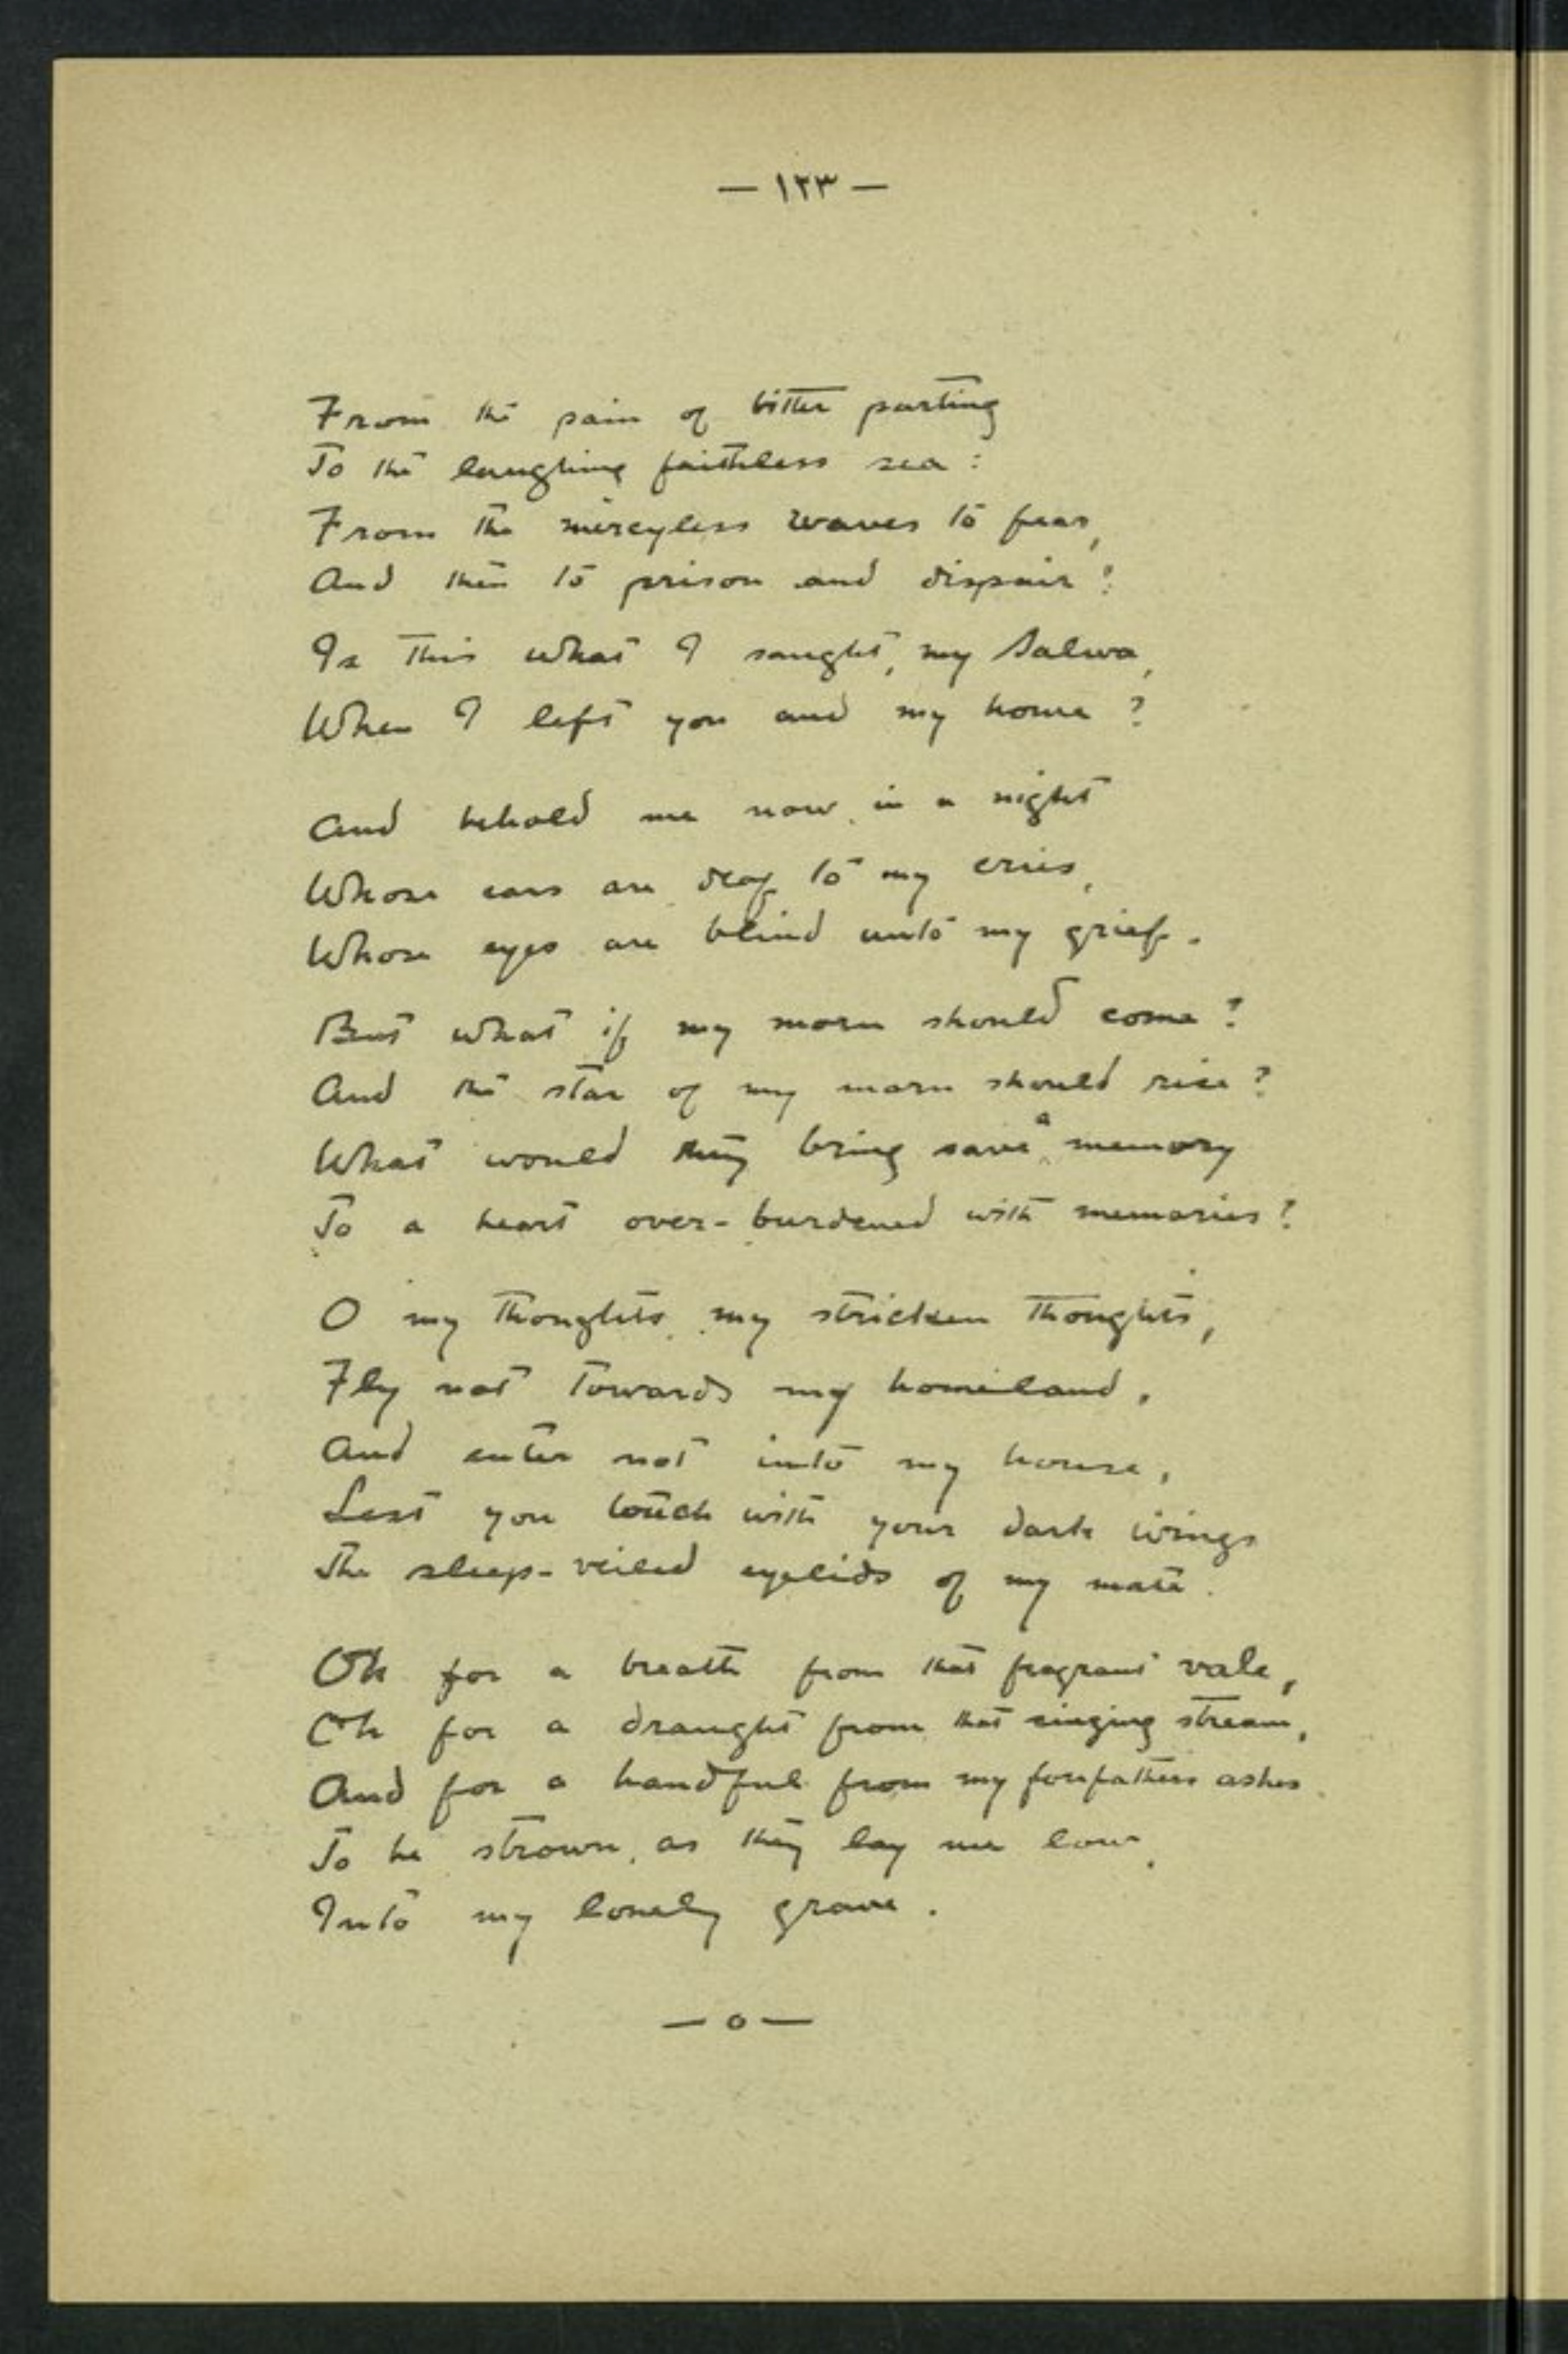 — ١٢٣ —
From the pain of bitter parting
To the laughing faithless sea:
From the mercyless waves to fear,
And then to prison and dispair!
Is this what I sought, my Salwa,
When I left you and my home?
And behold me now in a night
Whose ears are deaf to my cries,
Whose eyes are blind unto my grief.
But what if my morn should come?
And the star of my morn should rise?
What would they bring save a memory
To a heart over-burdened with memories?
O my thoughts, my stricken thoughts,
Fly not towards my homeland,
And enter not into my house,
Lest you touch with your dark wings
The sleep-veiled eyelids of my mate.
Oh for a breath from that fragrant vale,
Oh for a draught from that singing stream,
And for a handful from my forefathers ashes
To be strown, as they lay me low,
Into my lonely grave.
— o —